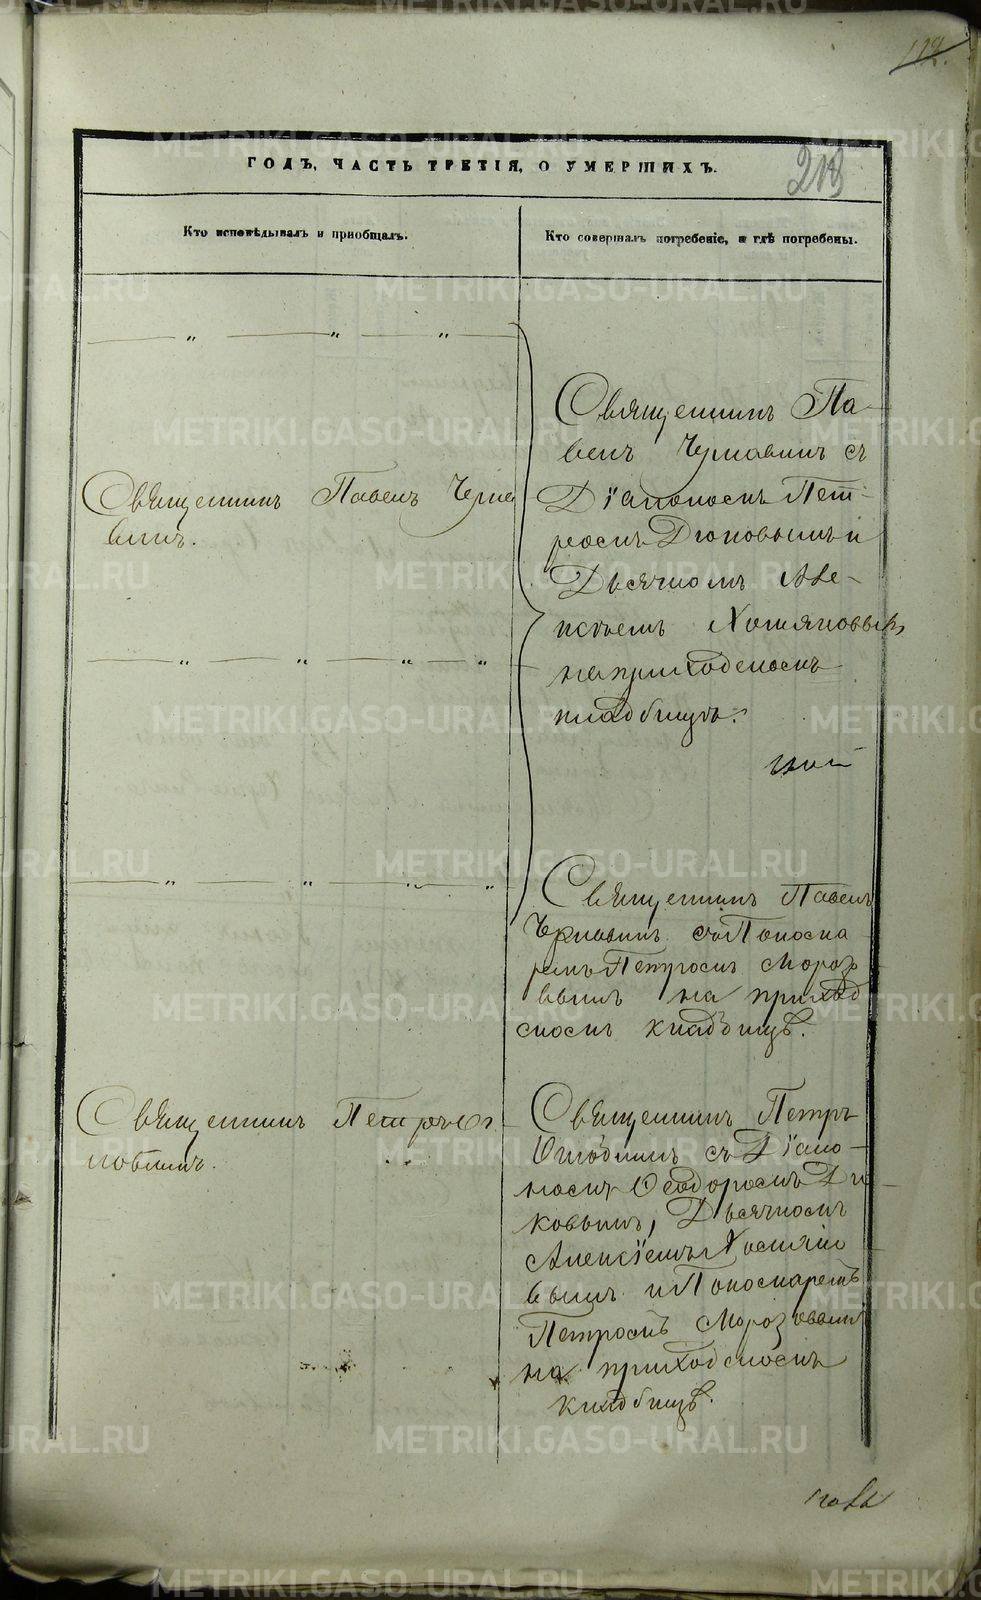 118.
ГОДЪ, ЧАСТЬ ТРЕТІЯ, О УМЕРШИХЪ.
213
Кто исповѣдывалъ и пріобщалъ.
Кто совершалъ погребеніе, и гдѣ погребены.
Священникъ Павелъ Черна
винъ.
Священникъ Па-
велъ Чернавинъ съ
Діакономъ Пет-
ромъ Диковымъ и
Дьячкомъ Але-
ксѣемъ Хомяковымъ
на приходскомъ
кладбищѣ.
Священникъ Павелъ
Чернавинъ съ Пономаремъ
Петромъ Морозо
вымъ на приход
скомъ кладбищѣ.
Священникъ Петръ
новымъ.
Священникъ Петръ
съ Діако-
номъ Ѳеодоромъ Ди-
ковымъ, Дьячкомъ
Алексіемъ Хомяко
вымъ и Пономаремъ
Петромъ Морозовымъ
на приходскомъ
кладбищѣ.
METRIKI.GASO-URAL.RU